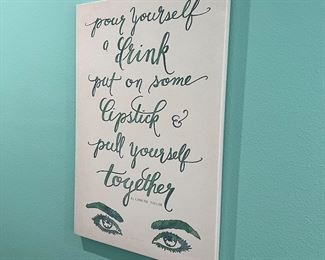 pour yourself
a drink
put on some
lipstick &
pull yourself
together